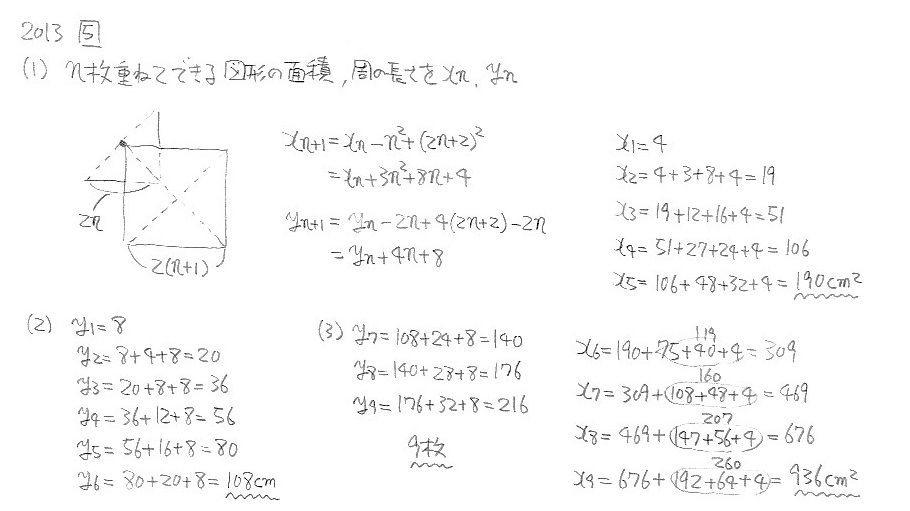 2013 5
(1) n枚重ねてできる図形の面積,周の長さをxn, yn
2n
2(n+1)
xn+1=xn-n²+(2n+2)²
=xn+3n²+8n+4
yn+1=yn-2n+4(2n+2)-2n
=yn+4n+8
x1=4
x2=4+3+8+4=19
x3=19+12+16+4=51
x4=51+27+24+4=106
x5=106+48+32+4=190cm²
(2) y1=8
y2=8+4+8=20
y3=20+8+8=36
y4=36+12+8=56
y5=56+16+8=80
y6=80+20+8=108cm
(3) y7=108+24+8=140
y8=140+28+8=176
y9=176+32+8=216
9枚
119
x6=190+75+40+4=309
160
x7=309+108+48+4=469
207
x8=469+147+56+4=676
260
x9=676+192+64+4=936cm²